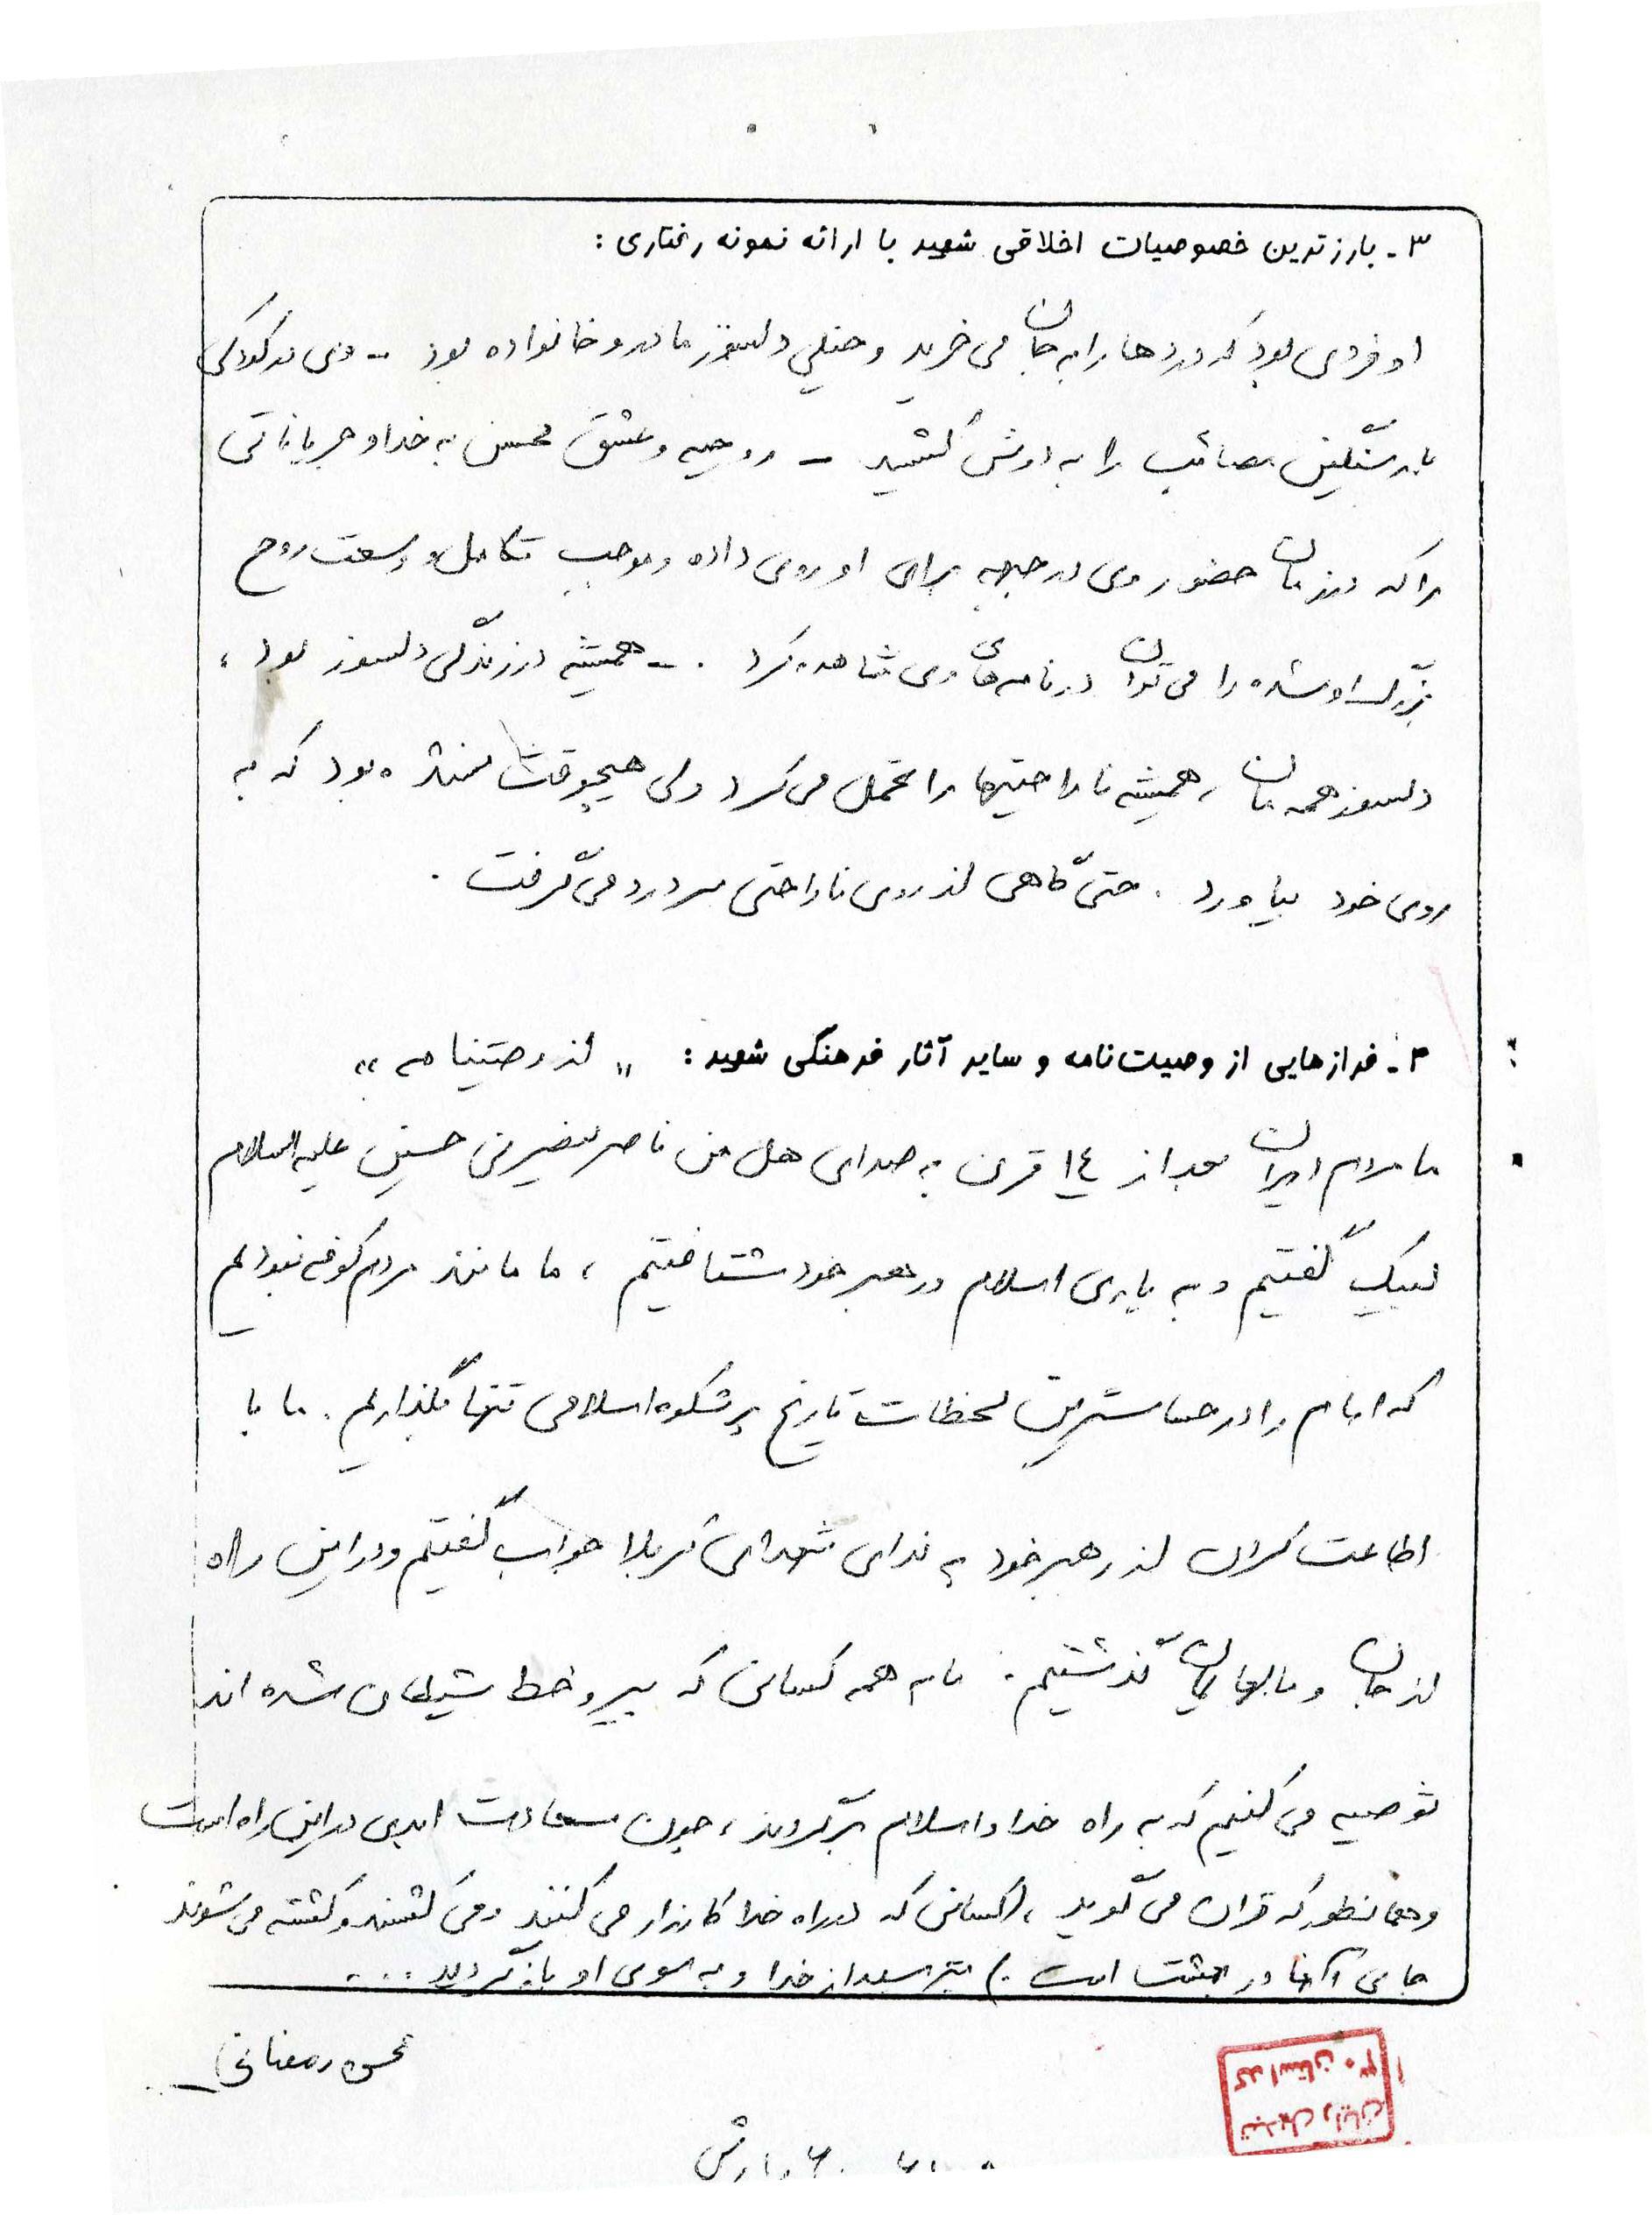 ۳ـ بارزترین خصوصیات اخلاقی شهید با ارائه نمونه رفتاری :
او فردی بود که دردها را به جان می خرید و خیلی دلسوز مادر و خانواده بود – وی در کودکی
بار سنگین مصائب را به دوش کشید – روحیه و عشق محسن به خدا و جریاناتی
را که در زمان حضور وی در جبهه برای او روی داده و موجب تکامل و وسعت روح
بزرگ او شده را می توان در نامه های وی مشاهده کرد . – همیشه در زندگی دلسوز بود ،
دلسوز همه مان ، همیشه ناراحتیها را تحمل می کرد ولی هیچوقت نشده بود که به
روی خود بیاورد . حتی گاهی از روی ناراحتی سردرد می گرفت .
۴ـ فرازهایی از وصیت‌نامه و سایر آثار فرهنگی شهید : " از وصیتنامه "
ما مردم ایران بعد از ۱٤ قرن به صدای هل من ناصر ینصرنی حسین علیه السلام
لبیک گفتیم و به یاری اسلام و رهبر خود شتافتیم ، ما مانند مردم کوفه نبودیم
که امام را در حساسترین لحظات تاریخ پرشکوه اسلامی تنها بگذاریم . ما با
اطاعت کردن از رهبر خود به ندای شهدای کربلا جواب گفتیم و در این راه
از جان و مالهایمان گذشتیم . ما به همه کسانی که پیرو خط شیطان شده اند
توصیه می کنیم که به راه خدا و اسلام برگردند ، چون سعادت ابدی در این راه است
و همانطور که قرآن می گوید ، (کسانی که در راه خدا کارزار می کنند و می کشند و کشته می شوند
جای آنها در بهشت است .) بترسید از خدا و به سوی او بازگردید ....
محسن رمضانی
تبدیل رایان
کد استان ۳۰